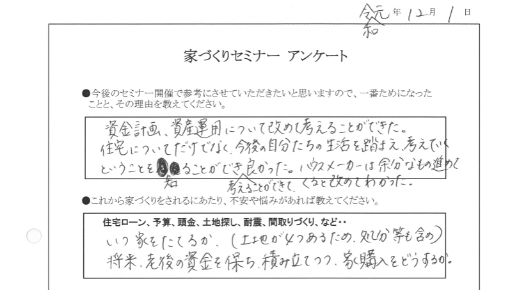 令和元年12月1日
家づくりセミナー アンケート
●今後のセミナー開催で参考にさせていただきたいと思いますので、一番ためになった
ことと、その理由を教えてください。
資金計画、資産運用について改めて考えることができた。
住宅についてだけでなく、今後の自分たちの生活を踏まえ、考えていく
ということを知ることができ良かった。ハウスメーカーは余分なもの進めて
考えることができて、くると改めてわかった。
●これから家づくりをされるにあたり、不安や悩みがあれば教えてください。
住宅ローン、予算、頭金、土地探し、耐震、間取りづくり、など・・
いつ家をたてるか、(土地が4つあるため、処分等も含め)
将来、老後の資金を保ち、積み立てつつ、家購入をどうするか。